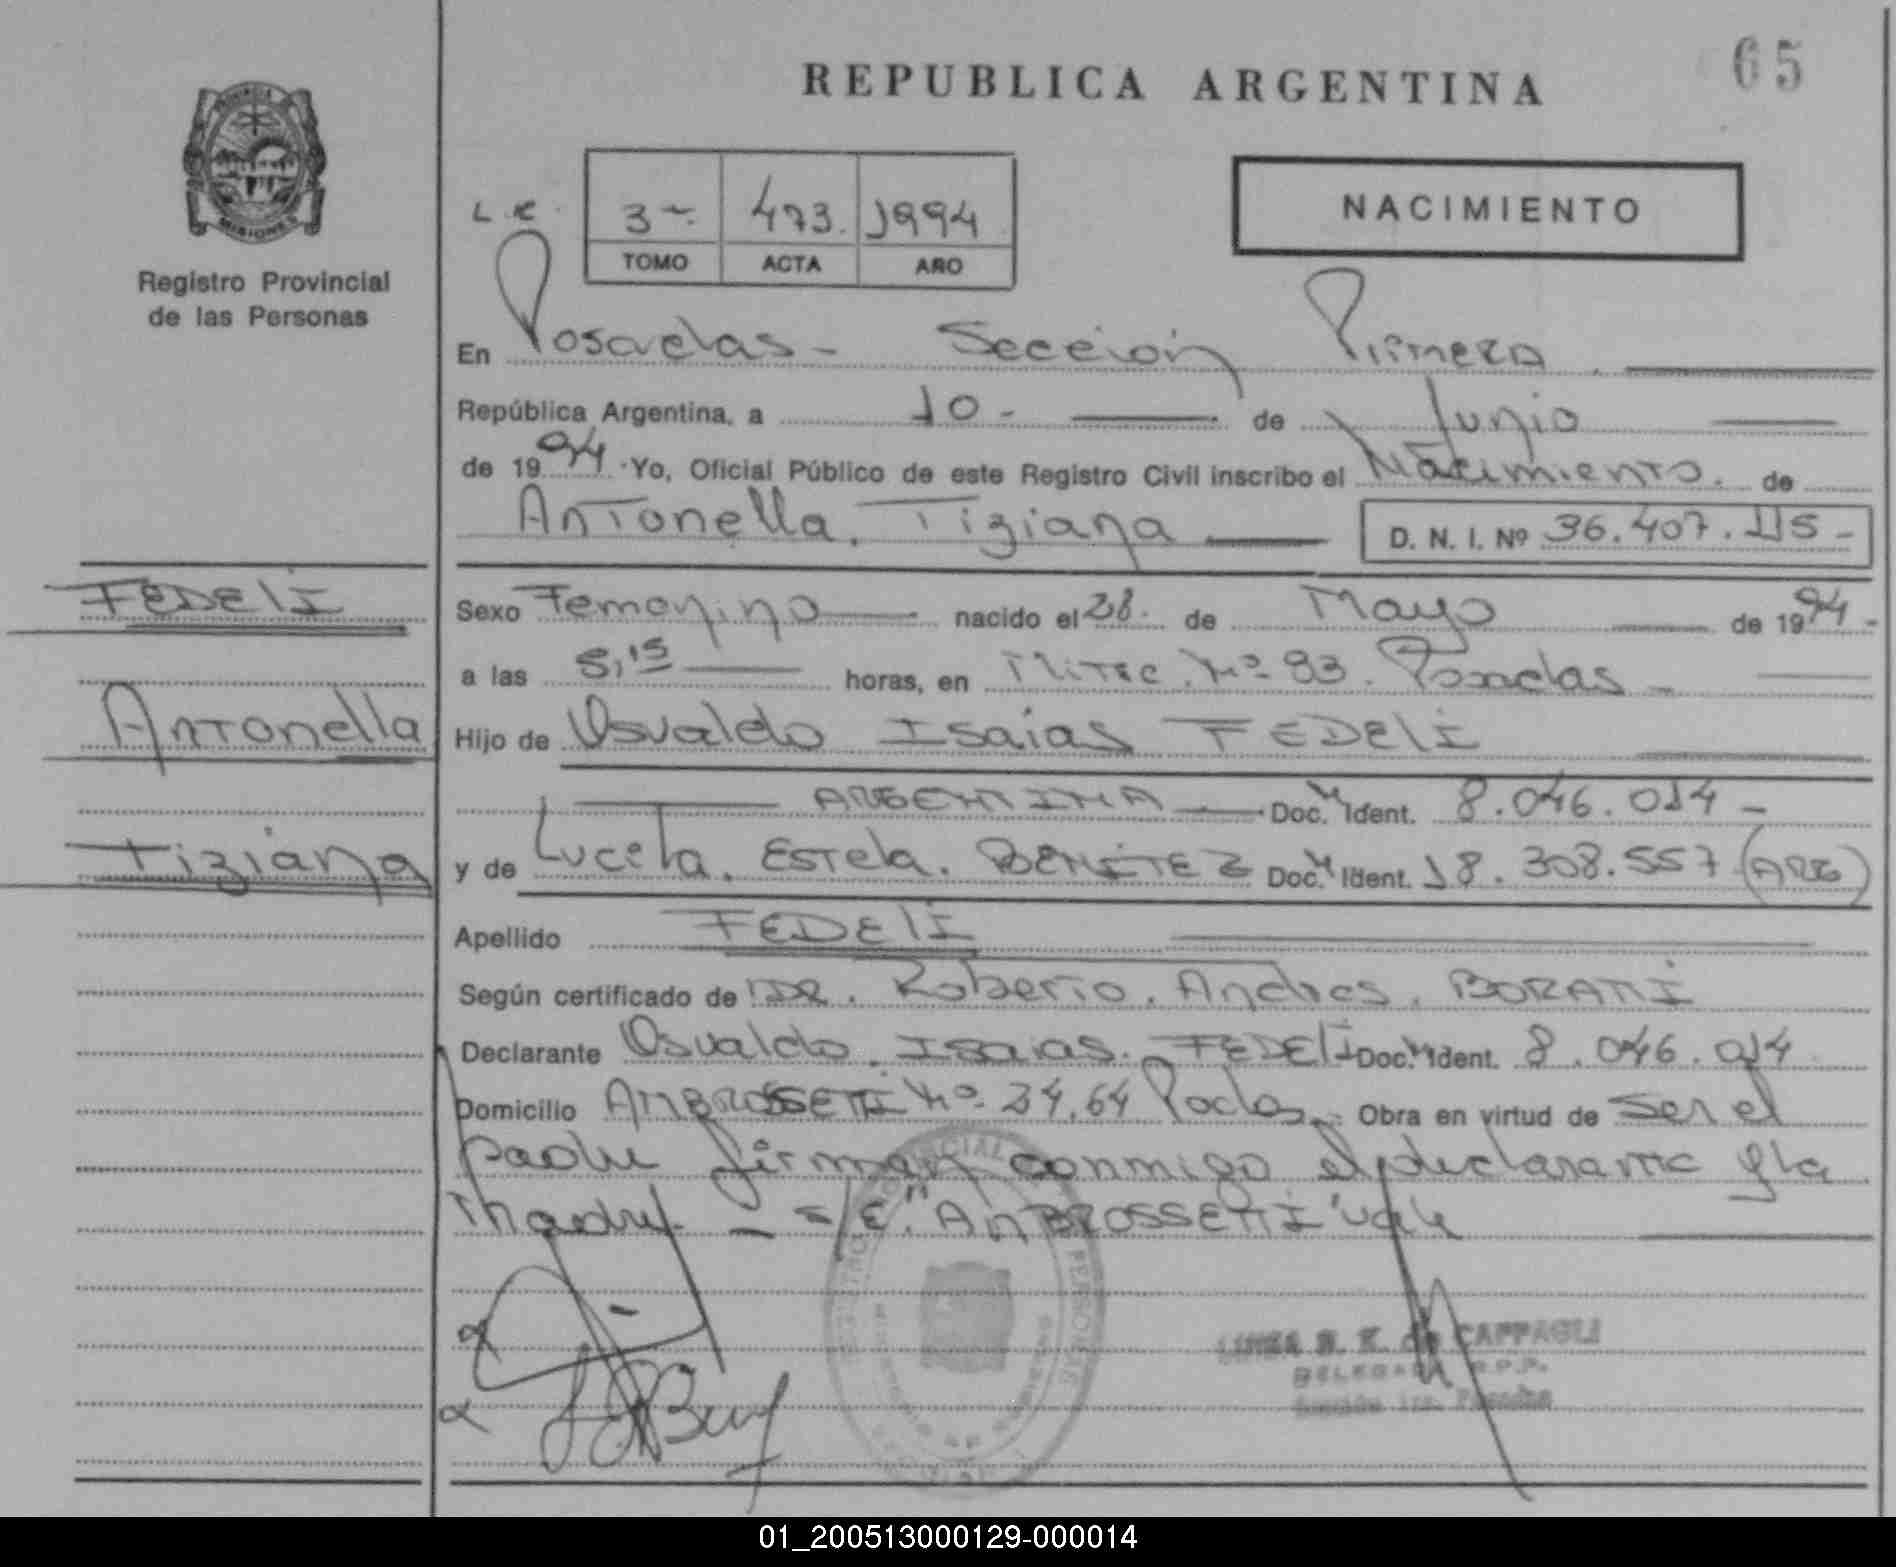 65
REPUBLICA ARGENTINA
PROVINCIA DE
MISIONES
Registro Provincial
de las Personas
NACIMIENTO
3 473. 1994
TOMO ACTA AÑO
En Posadas - Sección Primera
República Argentina, a 10 - de Junio
de 19 94 Yo, Oficial Público de este Registro Civil inscribo el Nacimiento. de
Antonella. Tiziana D. N. I. Nº 36.407.115 -
FEDELI
Antonella
Tiziana
Sexo Femenino nacido el 28. de Mayo de 19 94 -
a las 5,15 horas, en Mitre. Nº 83. Posadas -
Hijo de Osvaldo Isaias FEDELI
ARGENTINA Doc. Ident. 8.046.014 -
y de Estela. BENITEZ Doc. Ident. 18.308.557 (ARG)
Apellido FEDELI
Según certificado de DR. Roberto. Andres.
Declarante Osvaldo. Isaias. FEDELI Doc. Ident. 8.046.014
Domicilio AMBROSSETTI Nº 24,64 Pdas. Obra en virtud de Ser el
padre firman conmigo el declarante y la
madre - S/E." AMBROSSETTI" vale
de CAPPAGLI
DELEGADA R.P.P.
Sección 1ra. Posadas
01_200513000129-000014